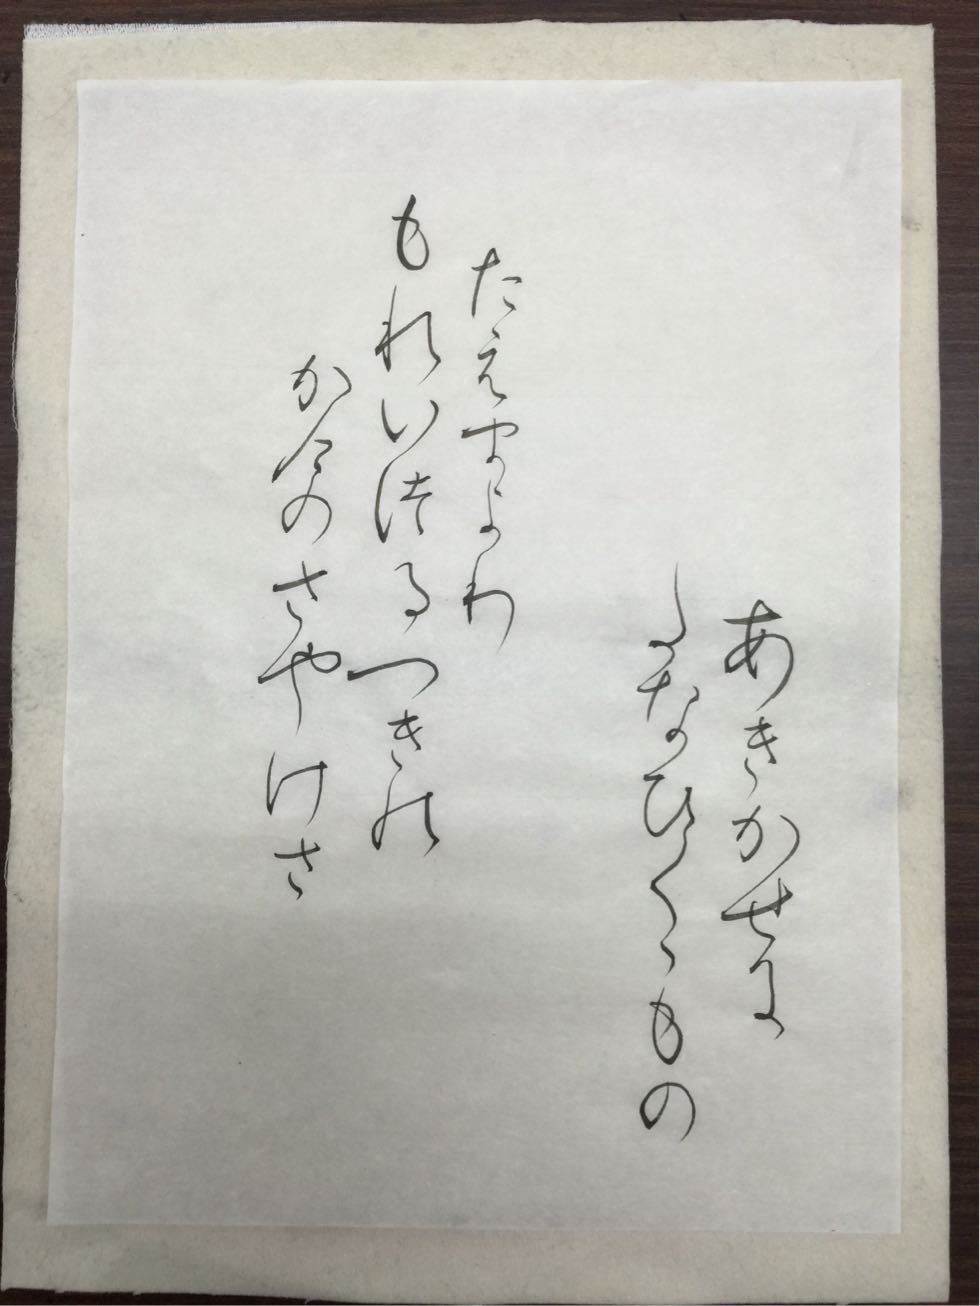 あきかせに
たなひくゝもの
たえまより
もれいつるつきの
かけのさやけさ